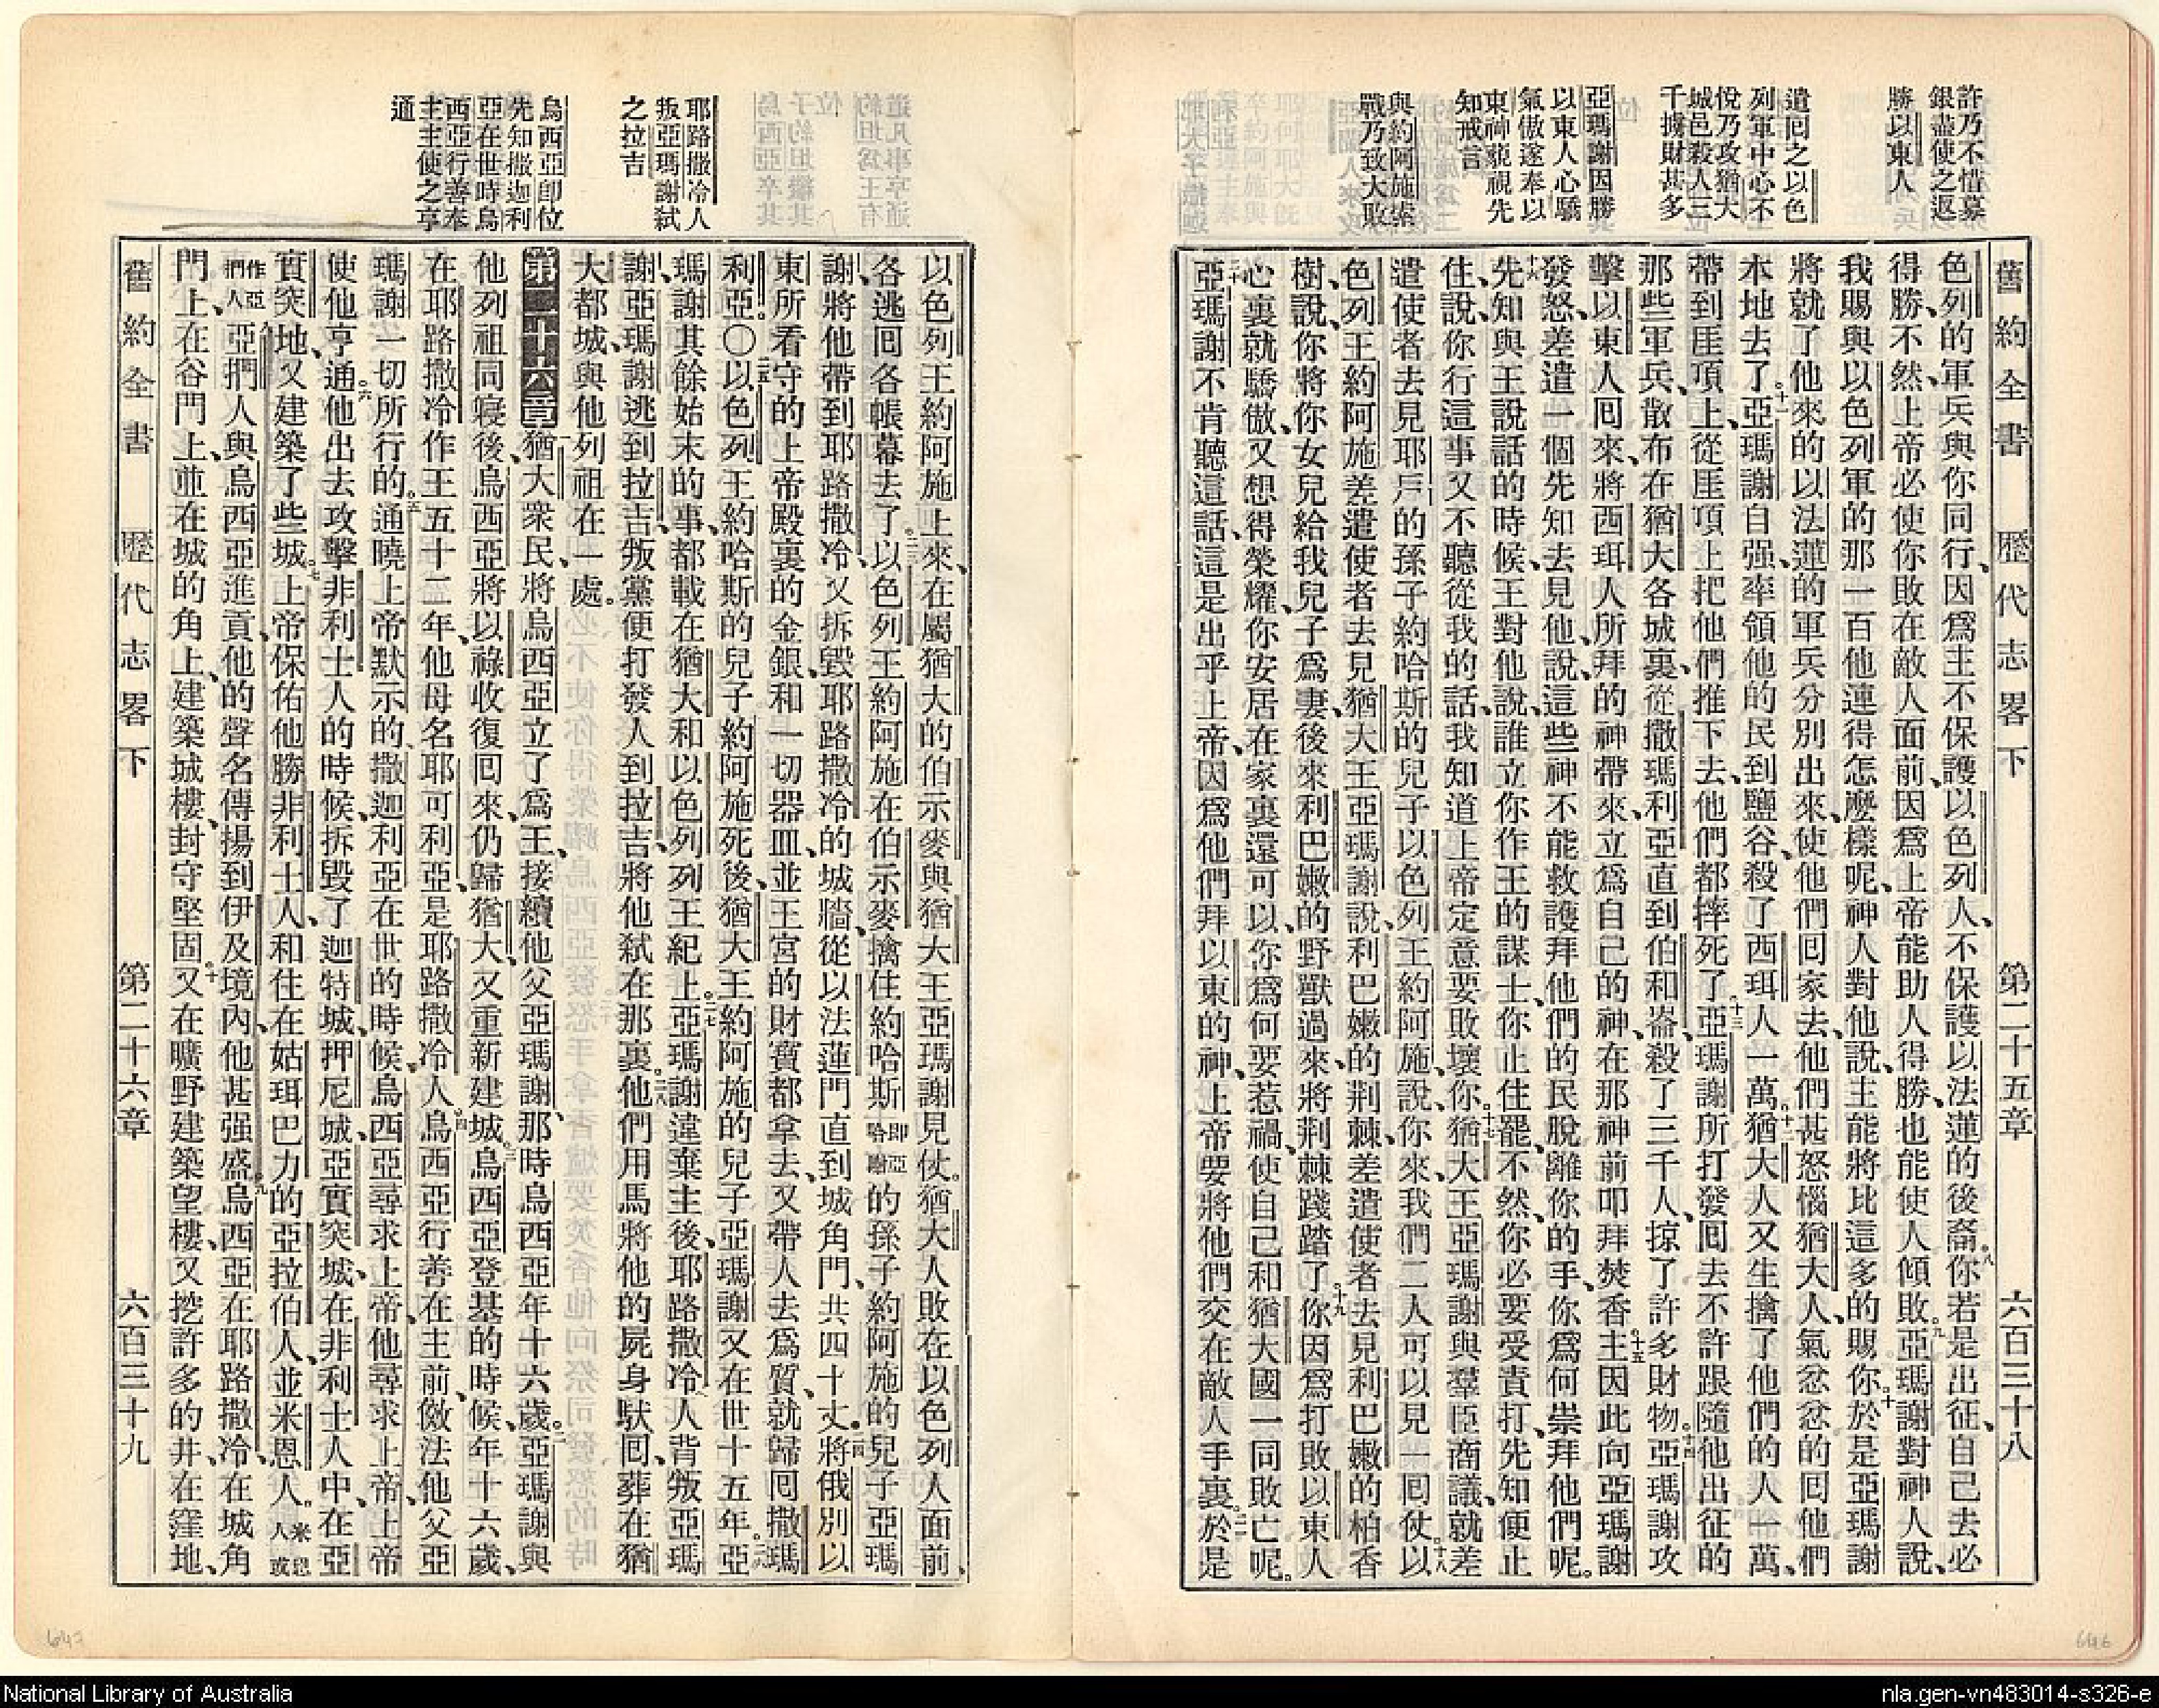 許乃不惜募
銀盡使之返
勝以東人
遣囘之以色
列軍中心不
悅乃攻猶大
城邑殺人三
千擄財甚多
亞瑪謝因勝
以東人心驕
氣傲遂奉以
東神藐視先
知戒言
與約阿施索
戰乃致大敗
舊約全書 歷代志畧下 第二十五章 六百三十八
色列的軍兵與你同行、因爲主不保護以色列人、不保護以法蓮的後裔。八你若是出征、自己去必
得勝、不然、上帝必使你敗在敵人面前、因爲上帝能助人得勝、也能使人傾敗。九亞瑪謝對神人說、
我賜與以色列軍的那一百他連得怎麼樣呢、神人對他說、主能將比這多的賜你。十於是亞瑪謝
將就了他來的以法蓮的軍兵分別出來、使他們囘家去、他們甚怒惱猶大人、氣忿忿的囘他們
本地去了。十一亞瑪謝自强、率領他的民到鹽谷、殺了西珥人一萬。十二猶大人又生擒了他們的人一萬、
帶到厓頂上、從厓頂上把他們推下去、他們都摔死了。十三亞瑪謝所打發囘去不許跟隨他出征的
那些軍兵、散布在猶大各城裏、從撒瑪利亞直到伯和崙、殺了三千人、掠了許多財物。十四亞瑪謝攻
擊以東人囘來、將西珥人所拜的神帶來、立爲自己的神、在那神前叩拜焚香。十五主因此向亞瑪謝
發怒、差遣一個先知去見他、說、這些神不能救護拜他們的民脫離你的手、你爲何崇拜他們呢。
十六先知與王說話的時候、王對他說、誰立你作王的謀士、你止住罷、不然、你必要受責打、先知便止
住、說、你行這事又不聽從我的話、我知道上帝定意要敗壞你。十七猶大王亞瑪謝與羣臣商議、就差
遣使者去見耶戶的孫子約哈斯的兒子以色列王約阿施、說、你來、我們二人可以見一囘仗。十八以
色列王約阿施差遣使者去見猶大王亞瑪謝、說、利巴嫩的荆棘、差遣使者去見利巴嫩的柏香
樹、說、你將你女兒給我兒子爲妻、後來利巴嫩的野獸過來、將荆棘踐踏了。十九你因爲打敗以東人
心裏就驕傲、又想得榮耀、你安居在家裏還可以、你爲何要惹禍、使自己和猶大國一同敗亡呢。
二十亞瑪謝不肯聽這話、這是出乎上帝、因爲他們拜以東的神、上帝要將他們交在敵人手裏。二一於是
耶路撒冷人
叛亞瑪謝弒
之拉吉
烏西亞卽位
先知撒迦利
亞在世時烏
西亞行善奉
主主使之亨
通
以色列王約阿施上來、在屬猶大的伯示麥與猶大王亞瑪謝見仗。猶大人敗在以色列人面前、
各逃囘各帳幕去了。二三以色列王約阿施在伯示麥擒住約哈斯卽亞哈謝的孫子約阿施的兒子亞瑪
謝、將他帶到耶路撒冷、又拆毀耶路撒冷的城牆、從以法蓮門直到城角門、共四十丈。二四將俄別以
東所看守的上帝殿裏的金銀、和一切器皿、並王宮的財寶都拿去、又帶人去爲質、就歸囘撒瑪
利亞。〇二五以色列王約哈斯的兒子約阿施死後、猶大王約阿施的兒子亞瑪謝又在世十五年。二六亞
瑪謝其餘始末的事、都載在猶大和以色列列王紀上。二七亞瑪謝違棄主後、耶路撒冷人背叛亞瑪
謝、亞瑪謝逃到拉吉、叛黨便打發人到拉吉、將他弒在那裏。二八他們用馬將他的屍身馱囘、葬在猶
大都城、與他列祖在一處。
第二十六章 一猶大衆民、將烏西亞立了爲王、接續他父亞瑪謝、那時烏西亞年十六歲。二亞瑪謝與
他列祖同寢後、烏西亞將以祿收復囘來、仍歸猶大、又重新建城。三烏西亞登基的時候、年十六歲、
在耶路撒冷作王五十二年、他母名耶可利亞、是耶路撒冷人。四烏西亞行善在主前、傚法他父亞
瑪謝一切所行的。五通曉上帝默示的撒迦利亞在世的時候、烏西亞尋求上帝、他尋求上帝、上帝
使他亨通。六他出去攻擊非利士人的時候、拆毀了迦特城、押尼城、亞實突城、在非利士人中、在亞
實突地、又建築了些城。七上帝保佑他勝非利士人、和住在姑珥巴力的亞拉伯人、並米恩人。米恩人或
作亞捫人八亞捫人與烏西亞進貢、他的聲名傳揚到伊及境內、他甚强盛。九烏西亞在耶路撒冷、在城角
門上、在谷門上、並在城的角上、建築城樓、封守堅固。十又在曠野建築望樓、又挖許多的井、在窪地、
舊約全書 歷代志畧下 第二十六章 六百三十九
647
646
National Library of Australia
nla.gen-vn483014-s326-e